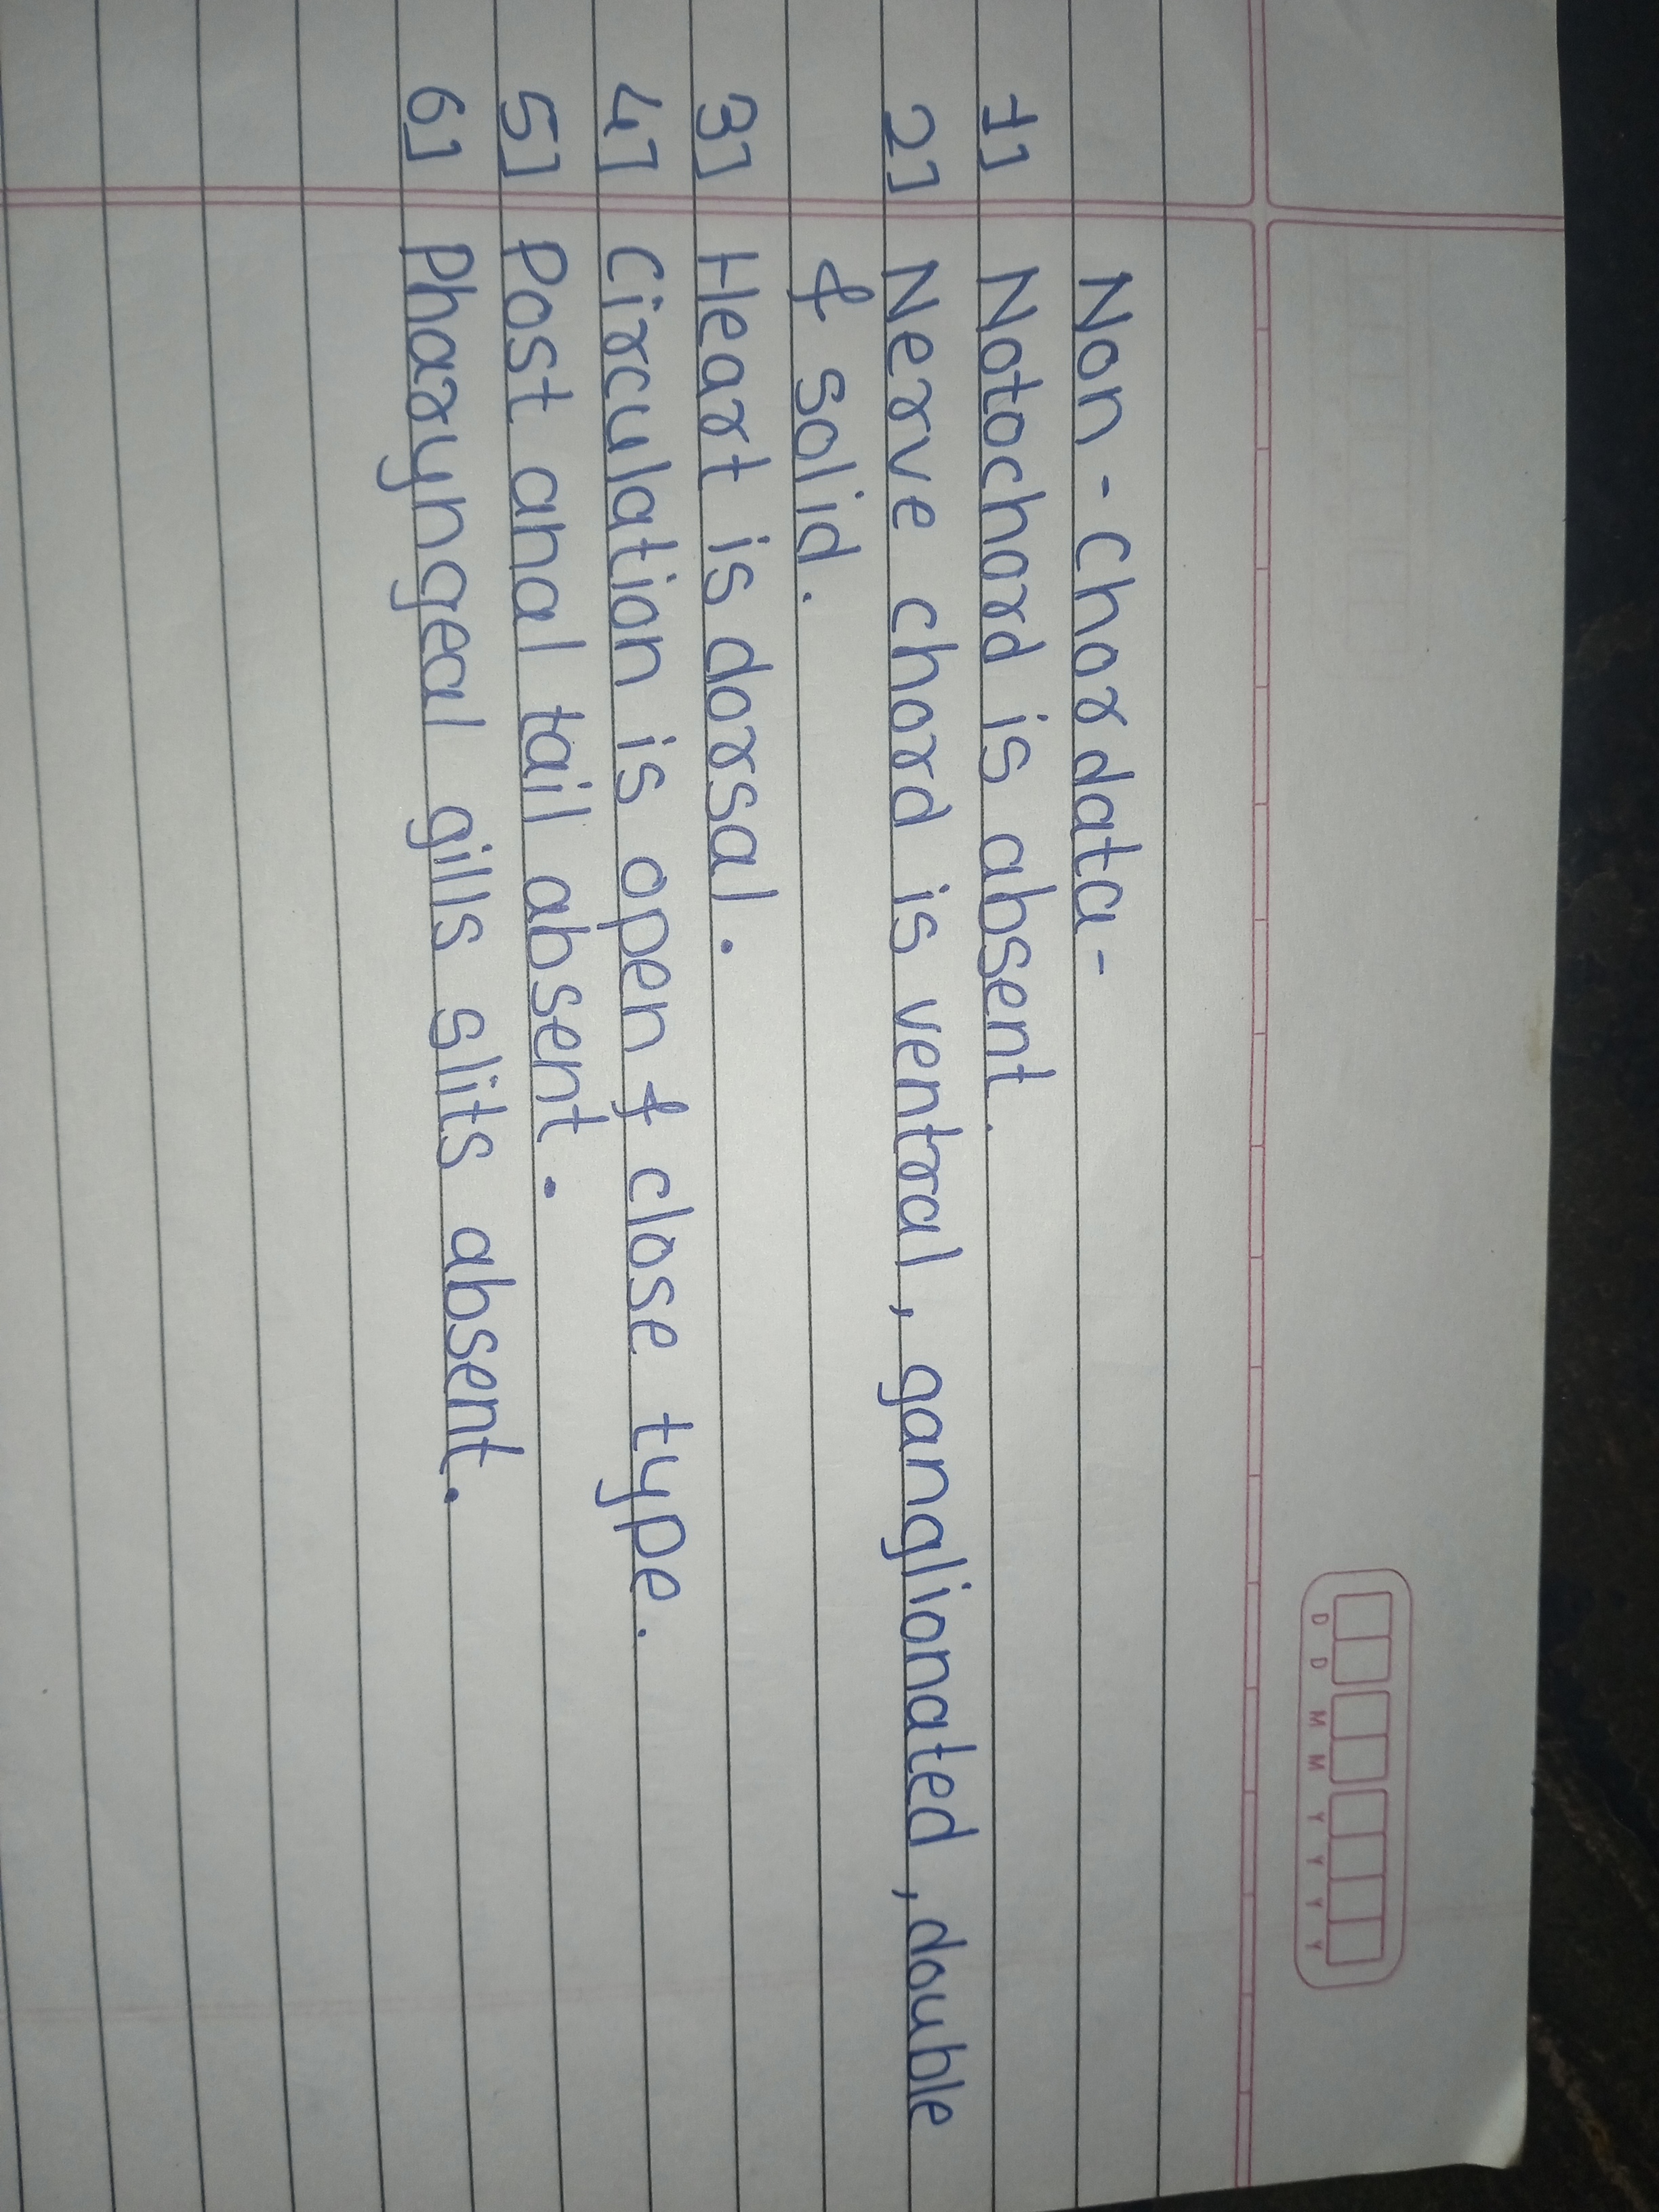 Non-Chordata-
1] Notochord is absent.
2] Nerve chord is ventral, ganglionated, double
& solid.
3] Heart is dorsal.
4] Circulation is open & close type.
5] Post anal tail absent.
6] Pharyngeal gills slits absent.
D D M M Y Y Y Y